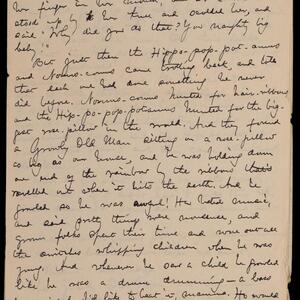 her finger in her mouth, and
stood up by her tree and scolded her, and
said "Why did you do that? You naughty big
baby."
But just then the Hippo-pop-pot-amus
and Nonno-corns came looking back, and
that each one had done something he never
did before. Nonno-corns hunted for hair-ribbons
and the Hip-po-pop-potamus hunted for the big-
gest rose-pillow in the world. And they found
a Growly Old Man sitting on a rose-pillow
as big as an house, and he was holding down
one end of the rainbow by the ribbons
ravelled out where it hits the earth. And he
growled so he was awful! He hated music,
and said pretty things were nonsense, and
grown folks spent their time and wore out all
the switches whipping children when he was
young. And whenever he saw a child he growled
like he was a drum drumming—a bass
I'd like to hear it, meaning. He would